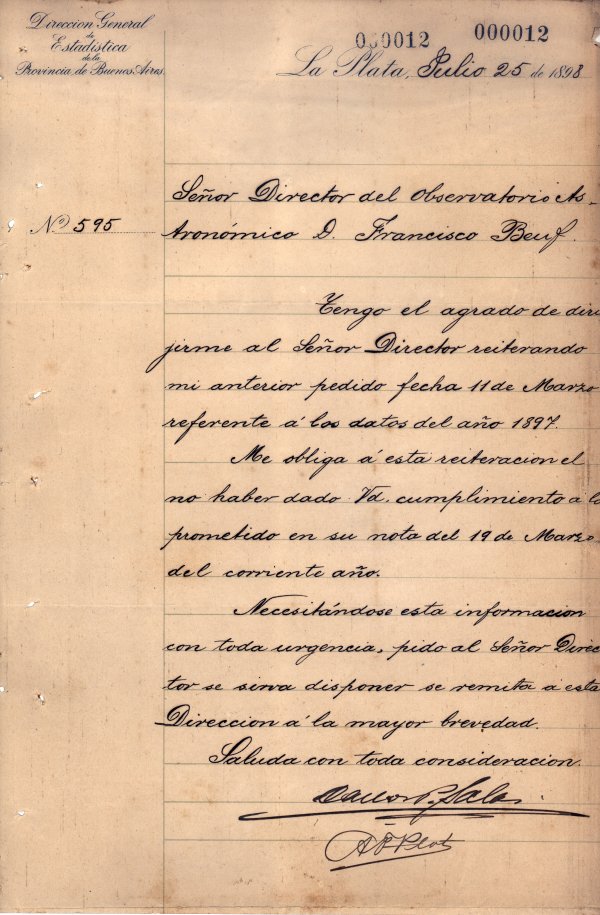 Direccion General
de
Estadística
de la
Provincia de Buenos Aires.
000012 000012
La Plata, Julio 25 de 1898
Nº 595
Señor Director del Observatorio As-
tronómico D. Francisco Beuf.
Tengo el agrado de diri
jirme al Señor Director reiterando
mi anterior pedido fecha 11 de Marzo
referente á los datos del año 1897.
Me obliga á esta reiteracion el
no haber dado Vd. cumplimiento a lo
prometido en su nota del 19 de Marzo
del corriente año.
Necesitándose esta informacion
con toda urgencia, pido al Señor Direc
tor se sirva disponer se remita a esta
Direccion á la mayor brevedad.
Saluda con toda consideracion.